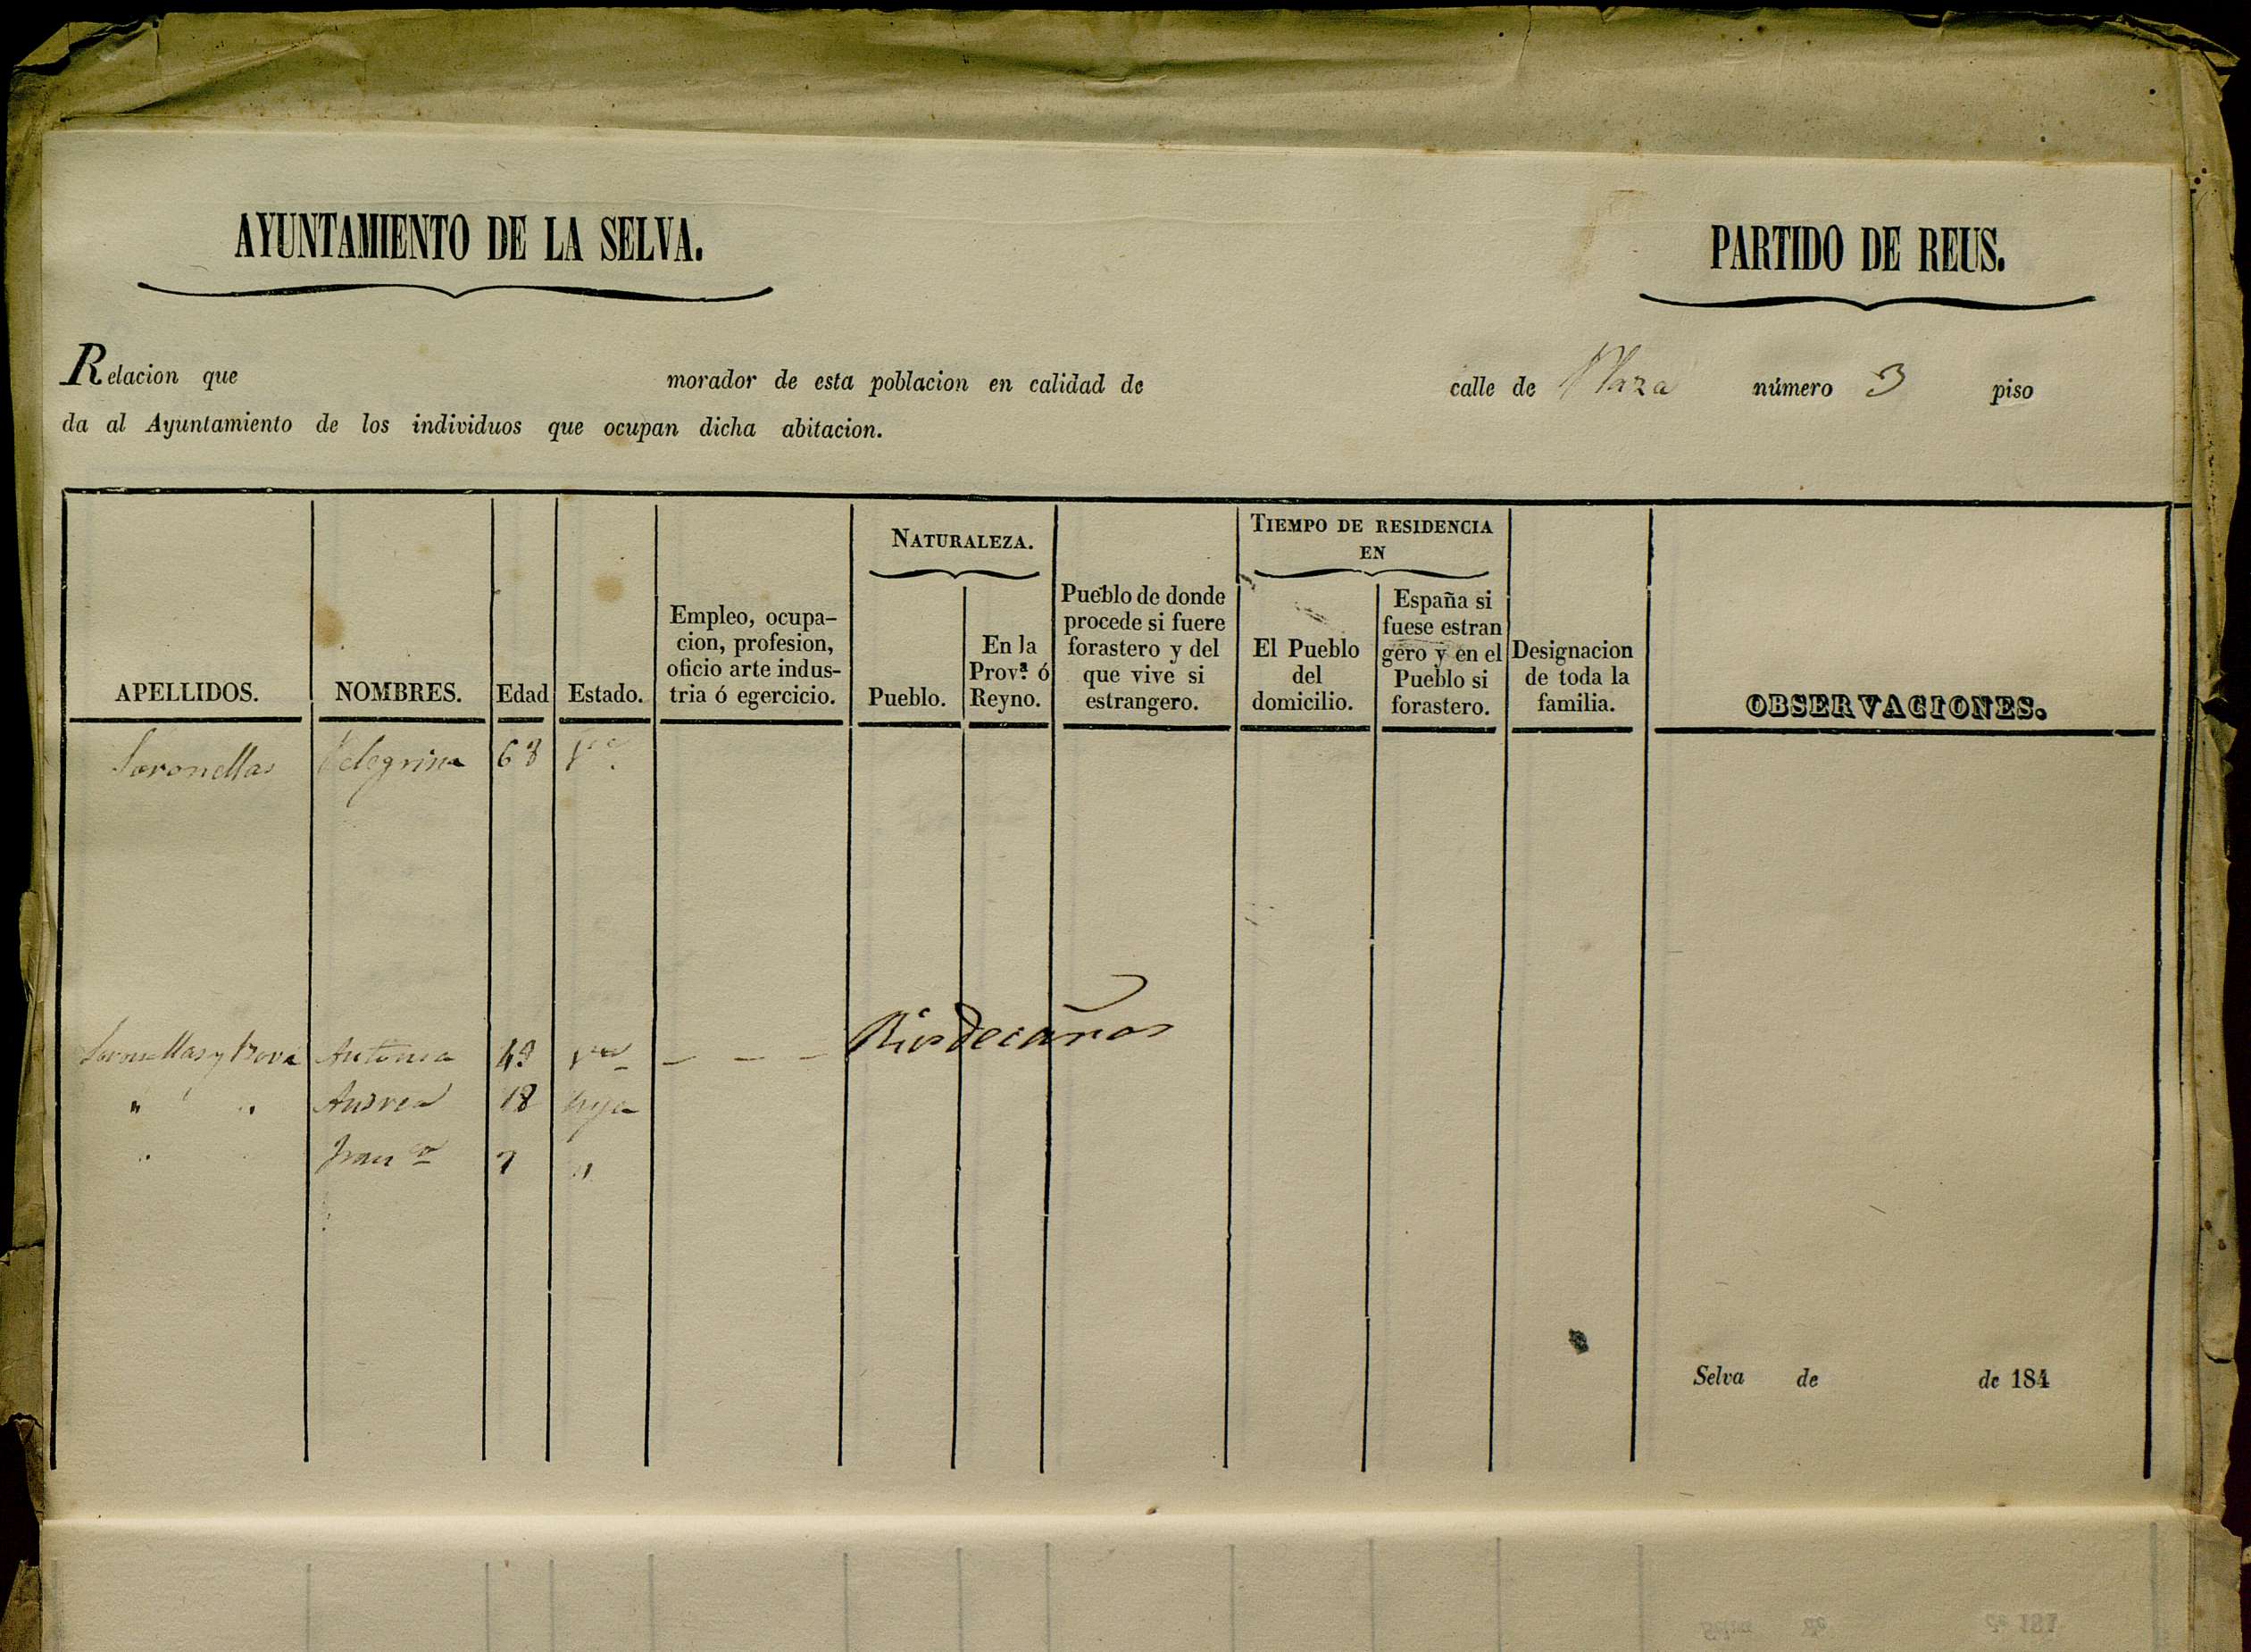 AYUNTAMIENTO DE LA SELVA.
PARTIDO DE REUS.
Relacion que morador de esta poblacion en calidad de calle de Plaza número 3 piso
da al Ayuntamiento de los individuos que ocupan dicha abitacion.
APELLIDOS.
NOMBRES.
Edad
Estado.
Empleo, ocupa-
cion, profesion,
oficio arte indus-
tria ó egercicio.
NATURALEZA.
Pueblo.
En la
Prov.ª ó
Reyno.
Pueblo de donde
procede si fuere
forastero y del
que vive si
estrangero.
TIEMPO DE RESIDENCIA
EN
El Pueblo
del
domicilio.
España si
fuese estran
gero y en el
Pueblo si
forastero.
Designacion
de toda la
familia.
OBSERVACIONES.
Soronellas Pelegrina 68
Soronellas y Bová Antonia 49 — — — Riusdecañas
" " Andrea 18 hija
" Fran.ca 7 "
Selva de de 184